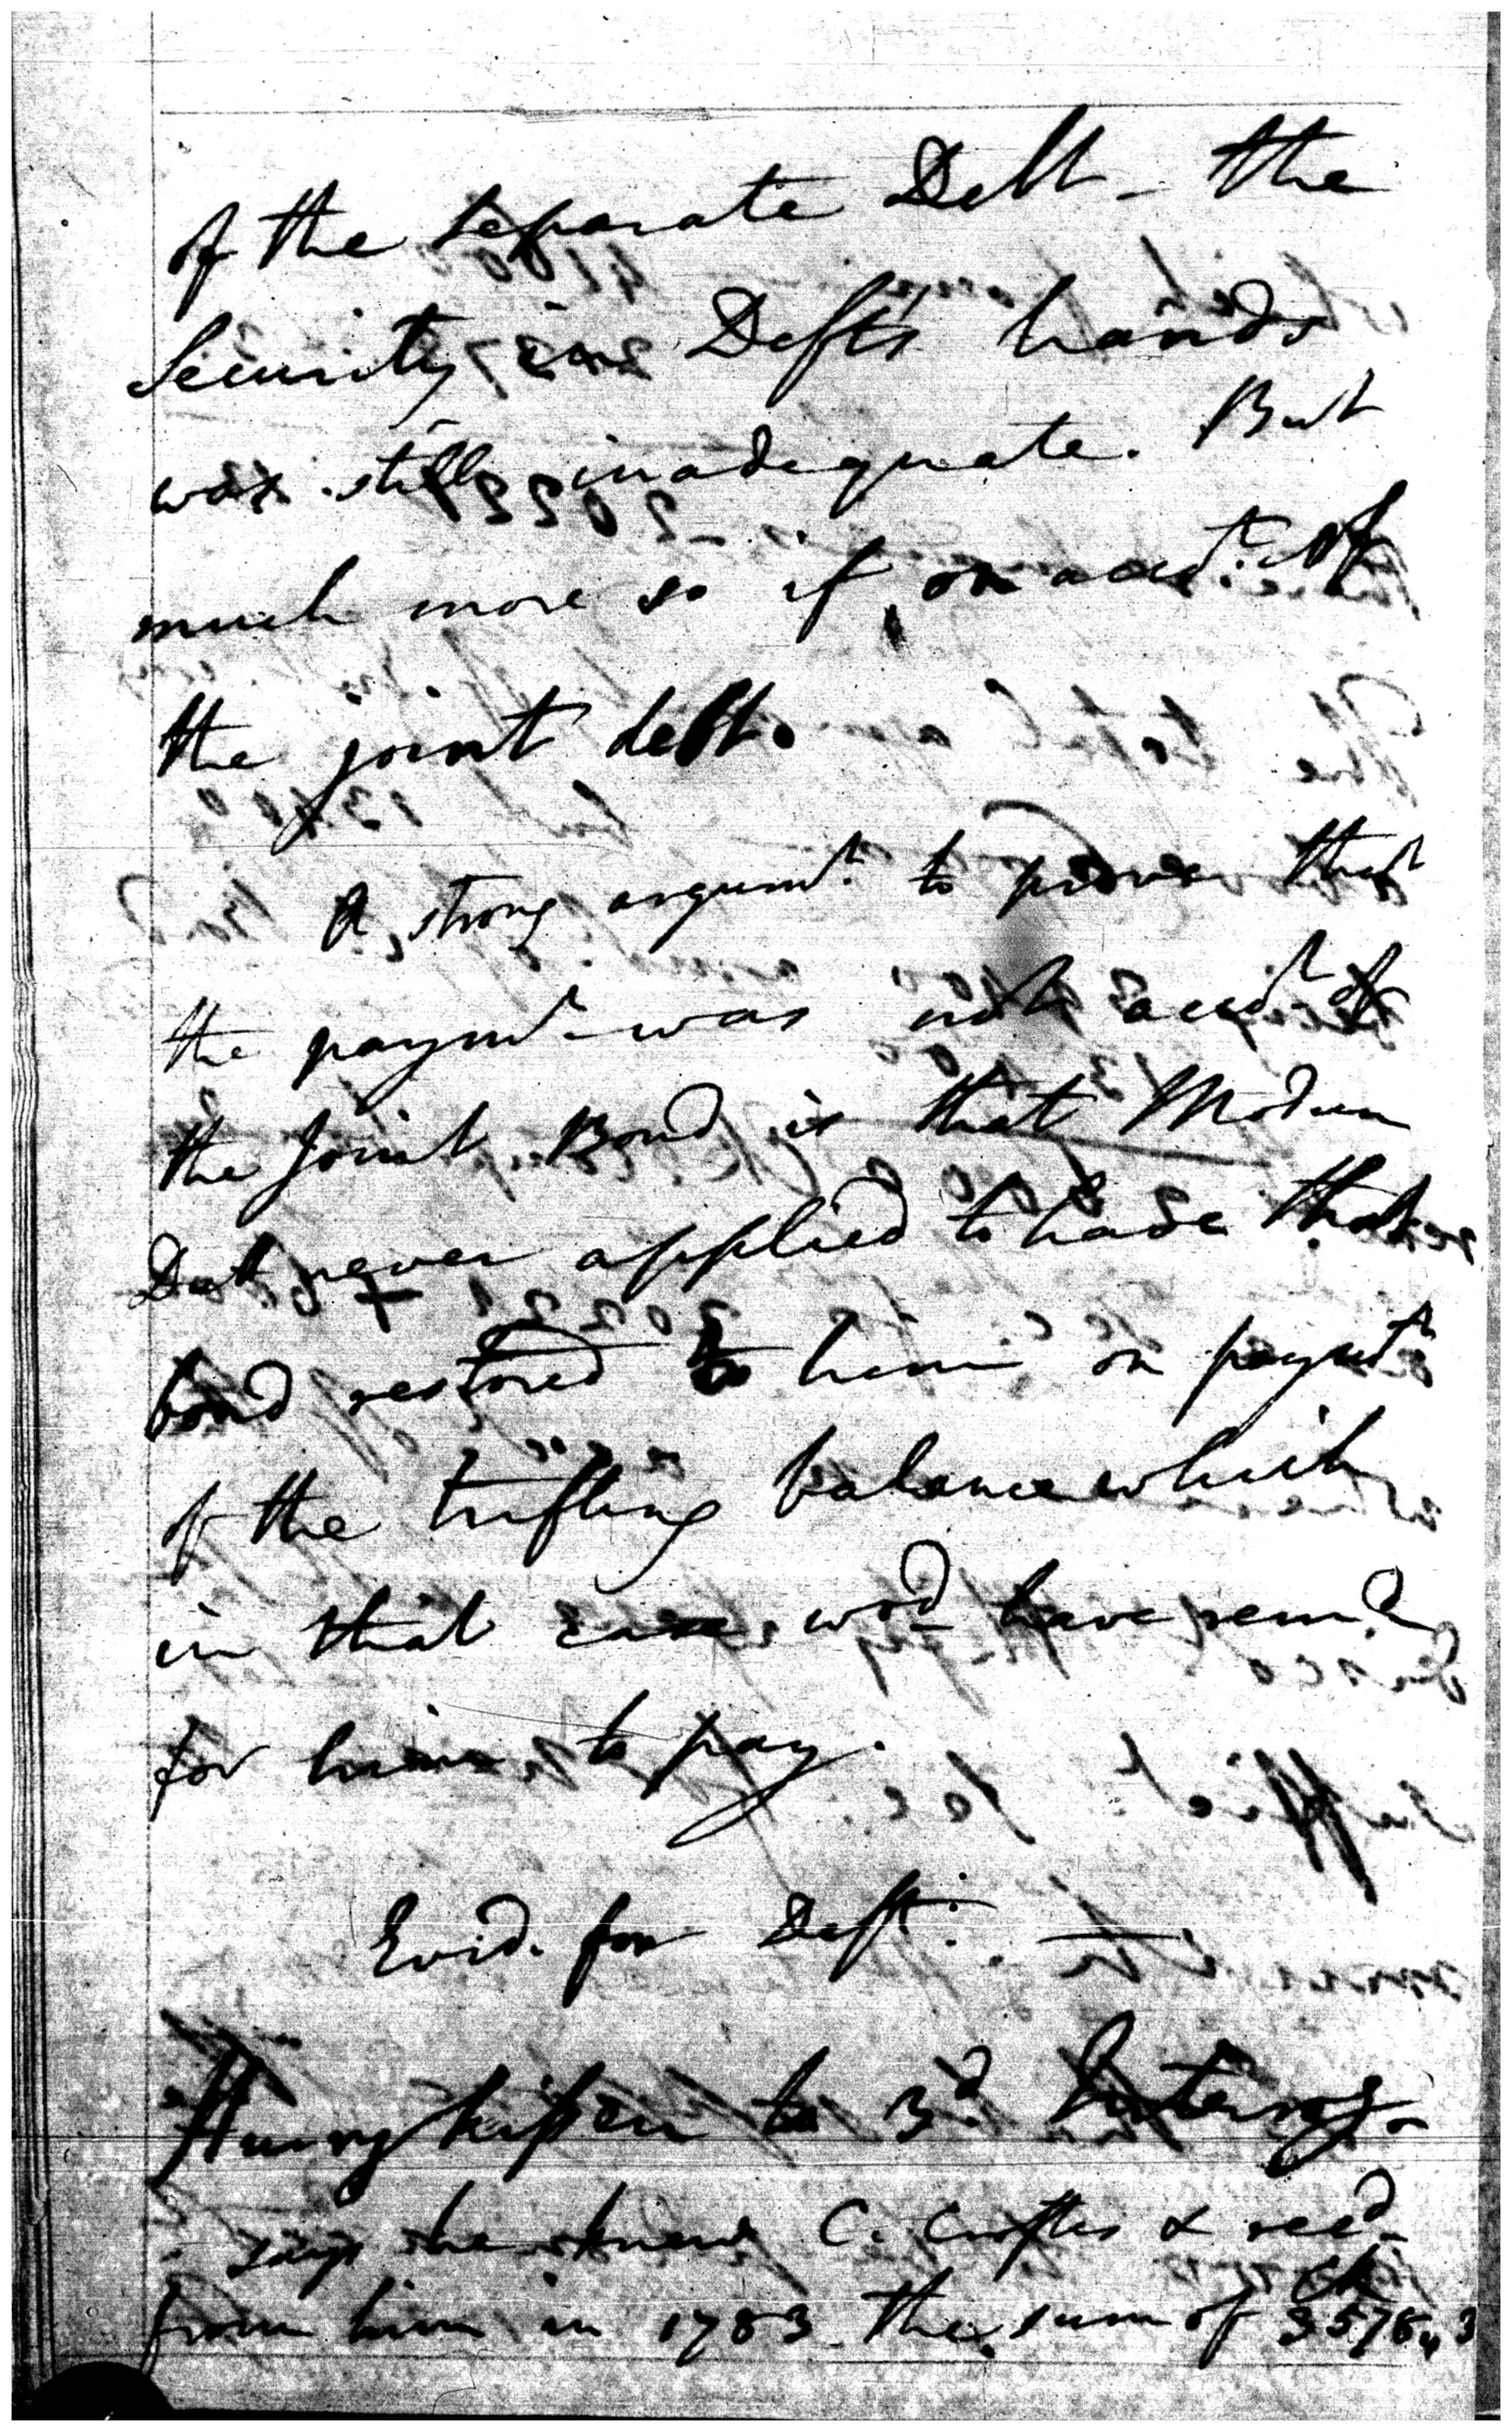 of the separate Debt - the
Security in Defts hands
was still inadequate. But
much more so if on acct. of
the joint debt.
A strong argumt. to prove that
the paymt. was not acct. of
the Joint Bond is that Modun
Dutt never applied to have that
bond restored to him on paymt
of the trifling balance which
in that case wod. have remd.
for him to pay.
Evid. for Deft:
to 3d. Interrog.
says he knew C. Croftes & recd.
from him in 1783 the sum of